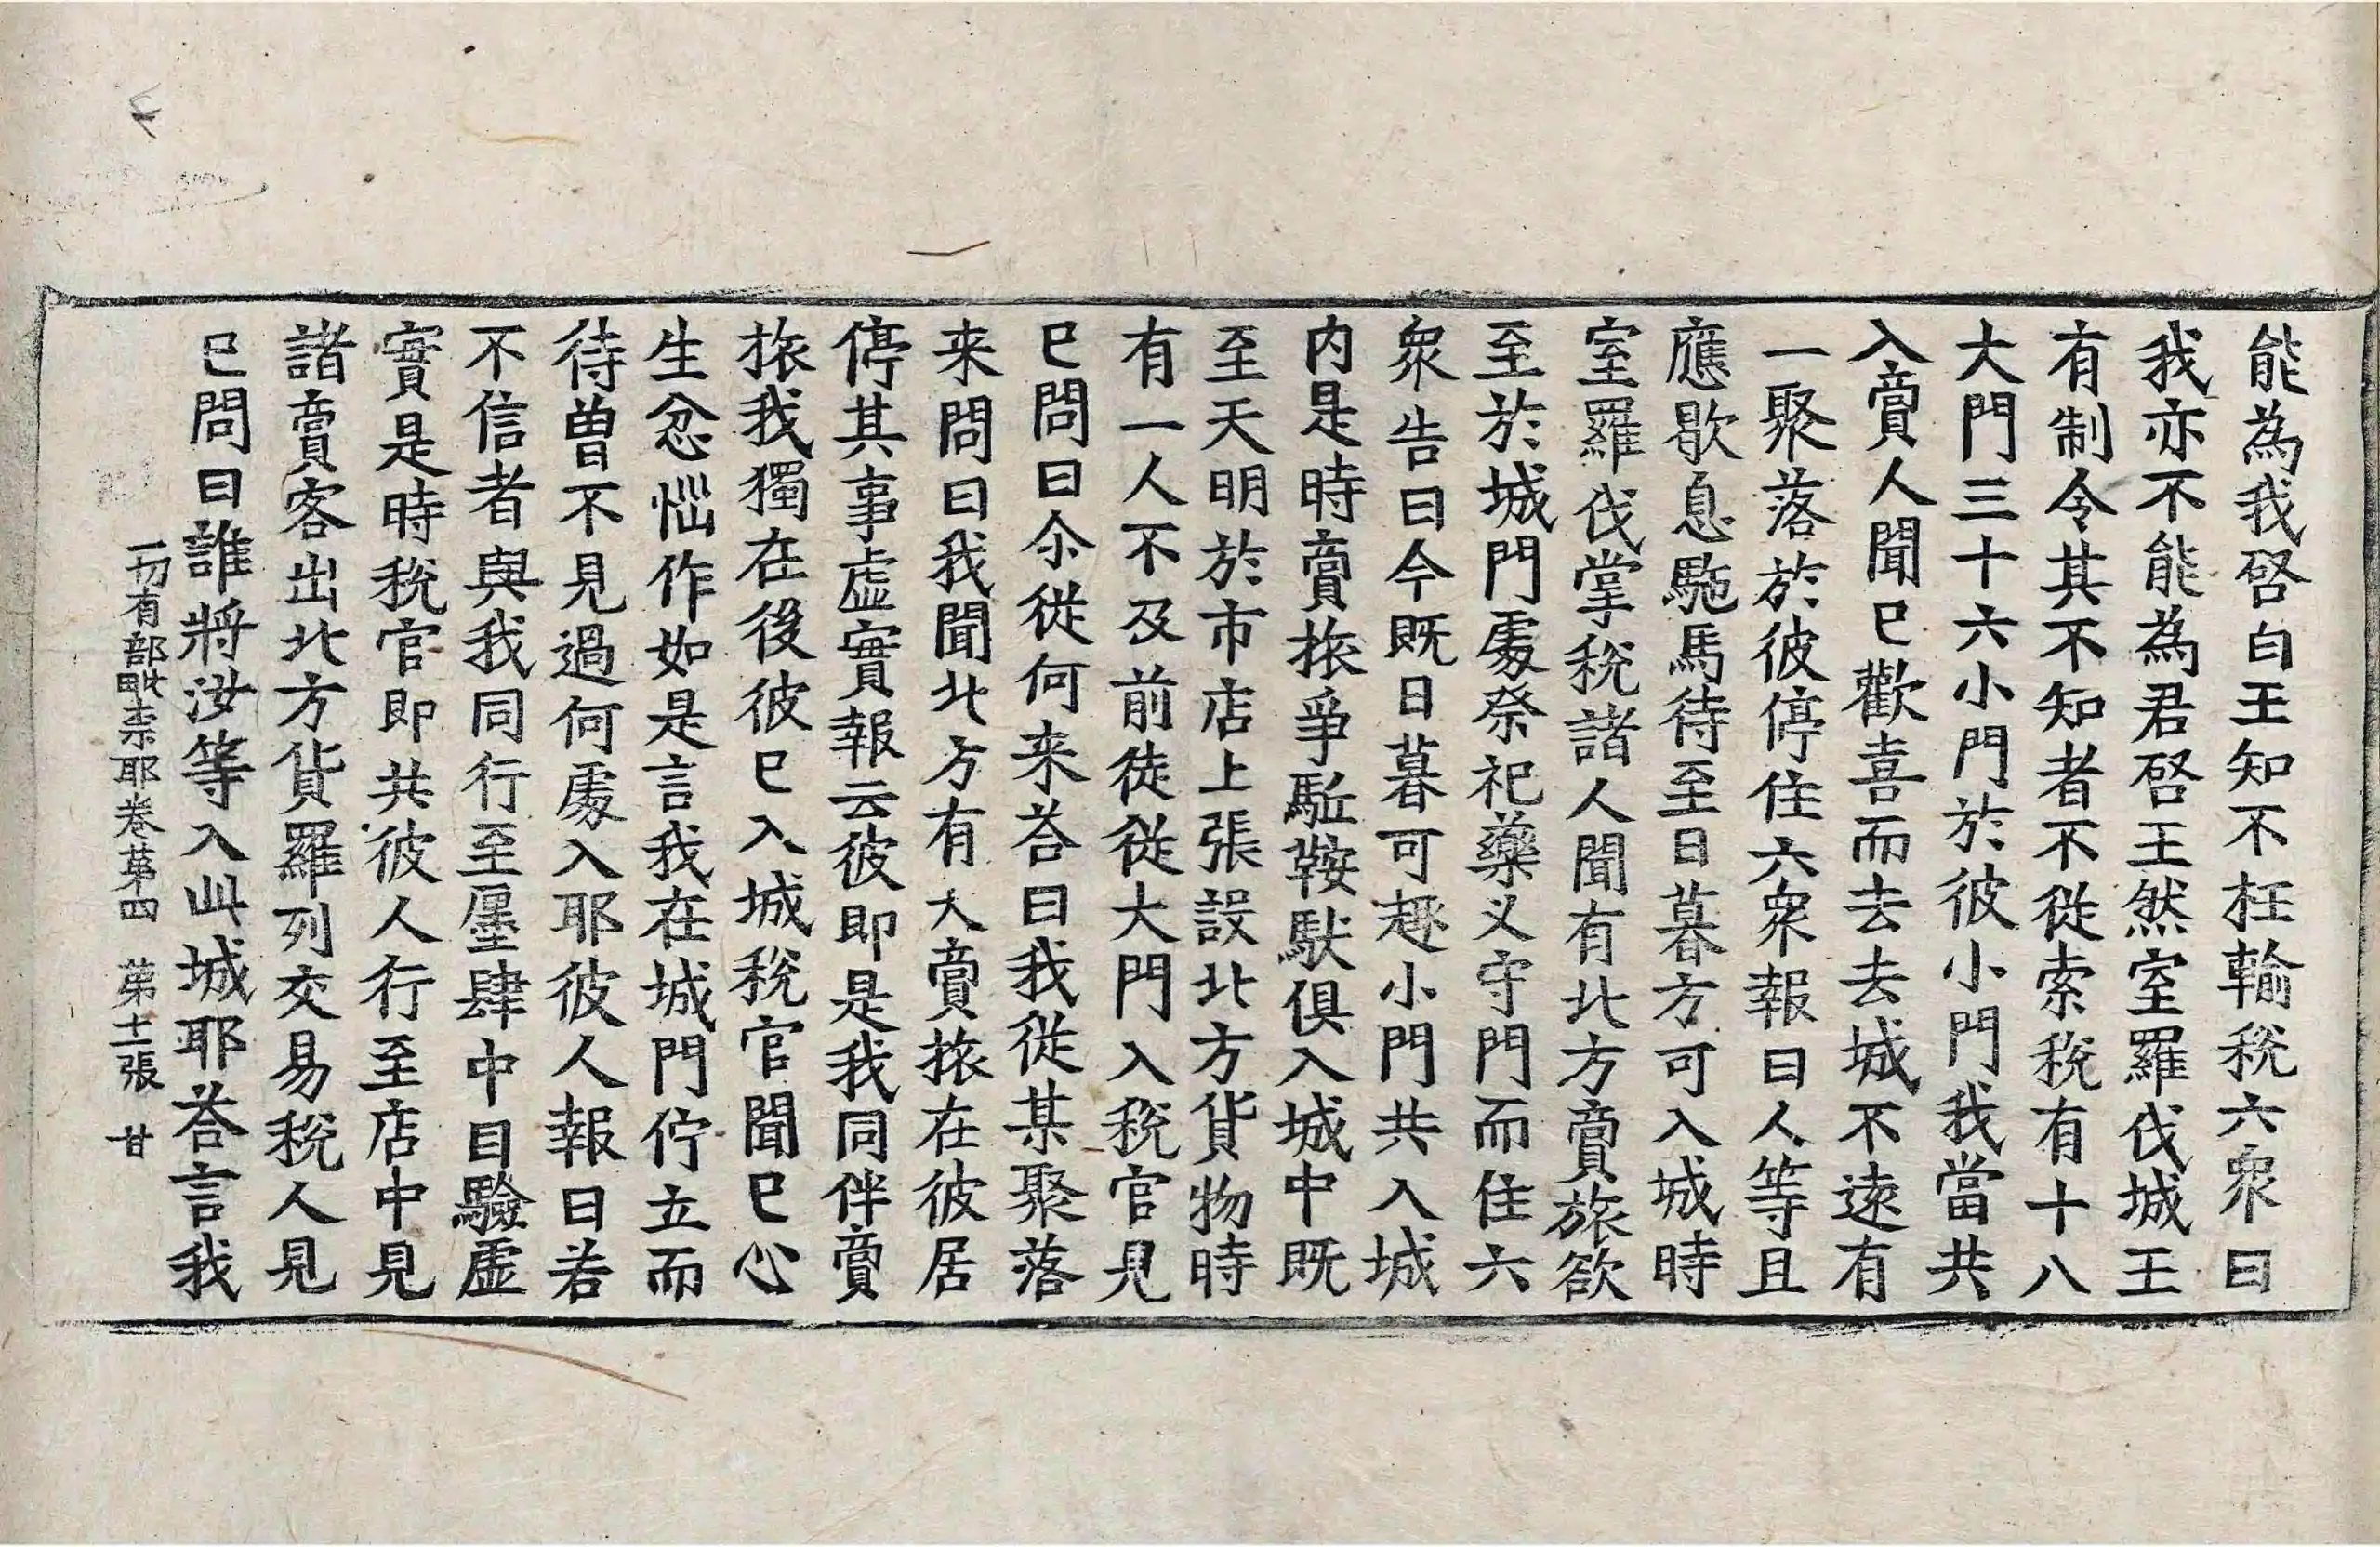 能為我啓白王知不枉輸稅六衆曰
我亦不能為君啓王然室羅伐城王
有制令其不知者不從索稅有十八
大門三十六小門於彼小門我當共
入賣人聞已歡喜而去去城不遠有
一聚落於彼停住六衆報曰人等且
應歇息馳馬待至日暮方可入城時
室羅伐掌稅諸人聞有北方賣旅欲
至於城門處祭祀藥义守門而住六
衆告曰今既日暮可趣小門共入城
内是時賣旅爭駈鞍馱俱入城中既
至天明於市店上張設北方貨物時
有一人不及前徒從大門入稅官見
已問曰尒從何来荅曰我從某聚落
来問曰我聞北方有大賣旅在彼居
停其事虛實報云彼即是我同伴賣
旅我獨在後彼已入城稅官聞已心
生忿惱作如是言我在城門佇立而
待曽不見過何處入耶彼人報曰若
不信者與我同行至㕓肆中目驗虛
實是時稅官即共彼人行至店中見
諸賣客出北方貨羅列交易稅人見
已問曰誰將汝等入此城耶荅言我
一切有部毗柰耶卷苐四　苐十一張　甘